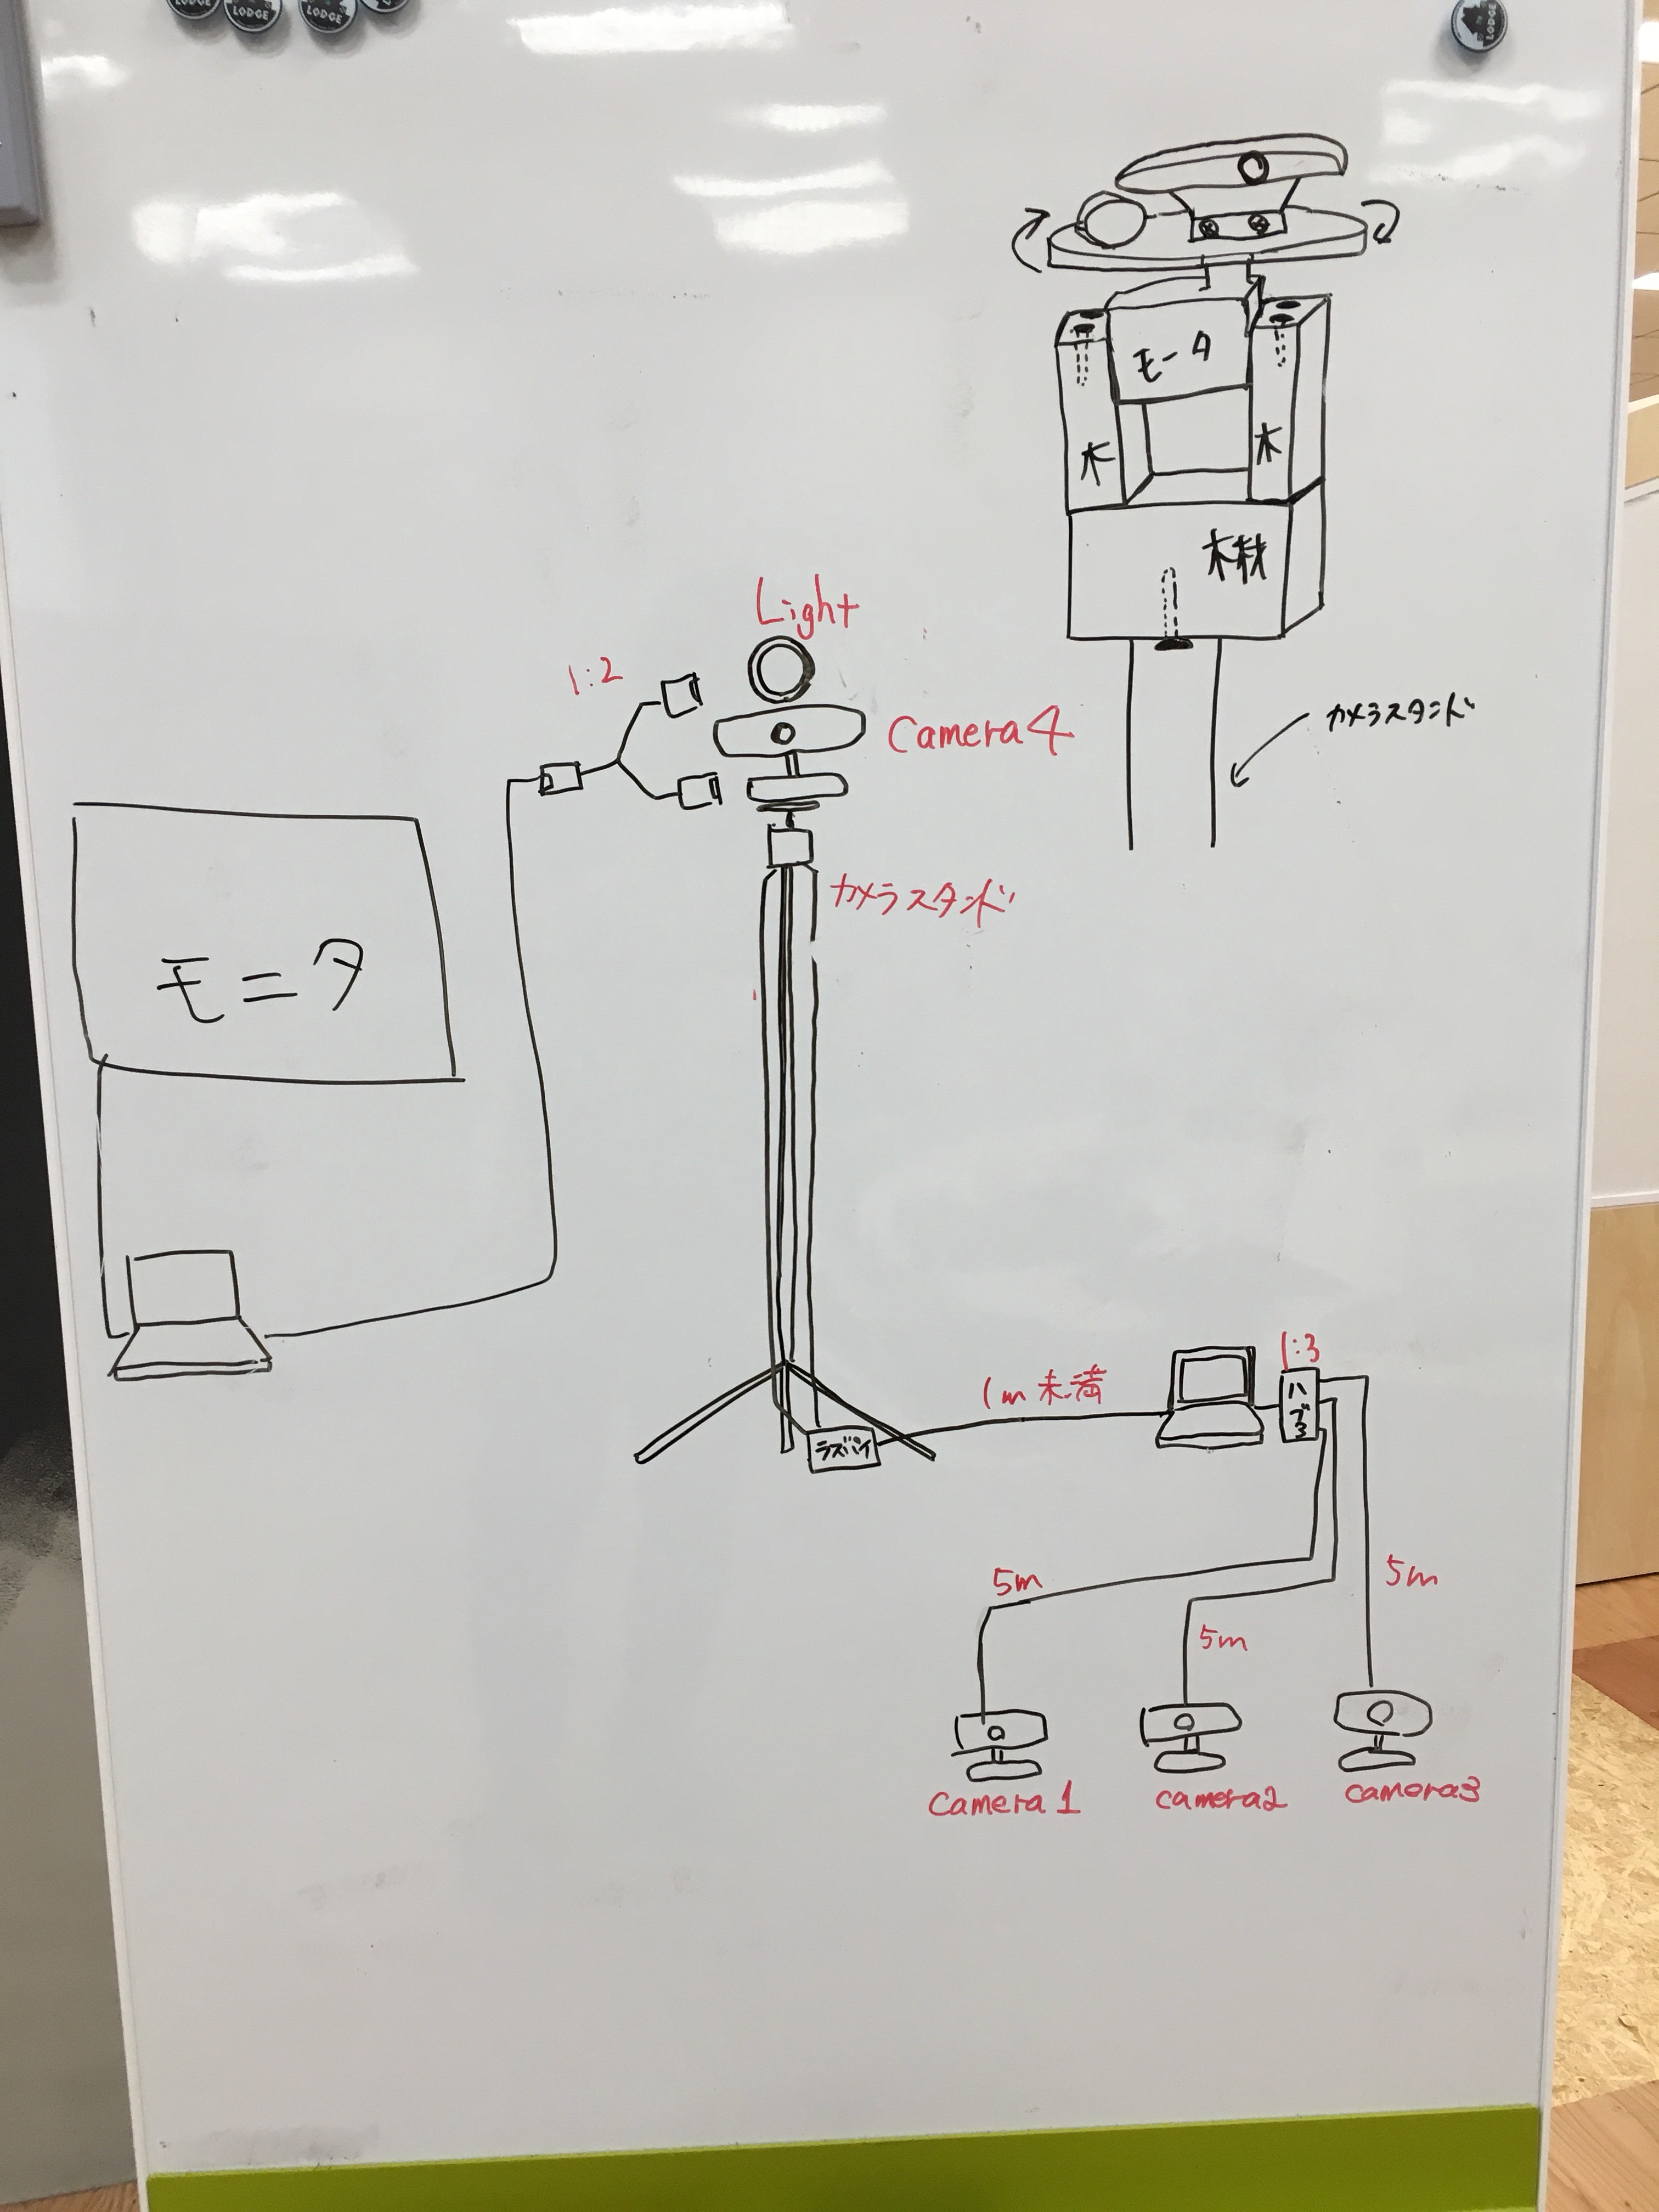 LODGE
LODGE
LODGE
LODGE
モータ
木
木
木材
カメラスタンド
Light
1:2
Camera4
カメラスタンド
モニタ
1m未満
1:3
ハブ
ラズパイ
5m
5m
5m
camera1
camera2
camera3